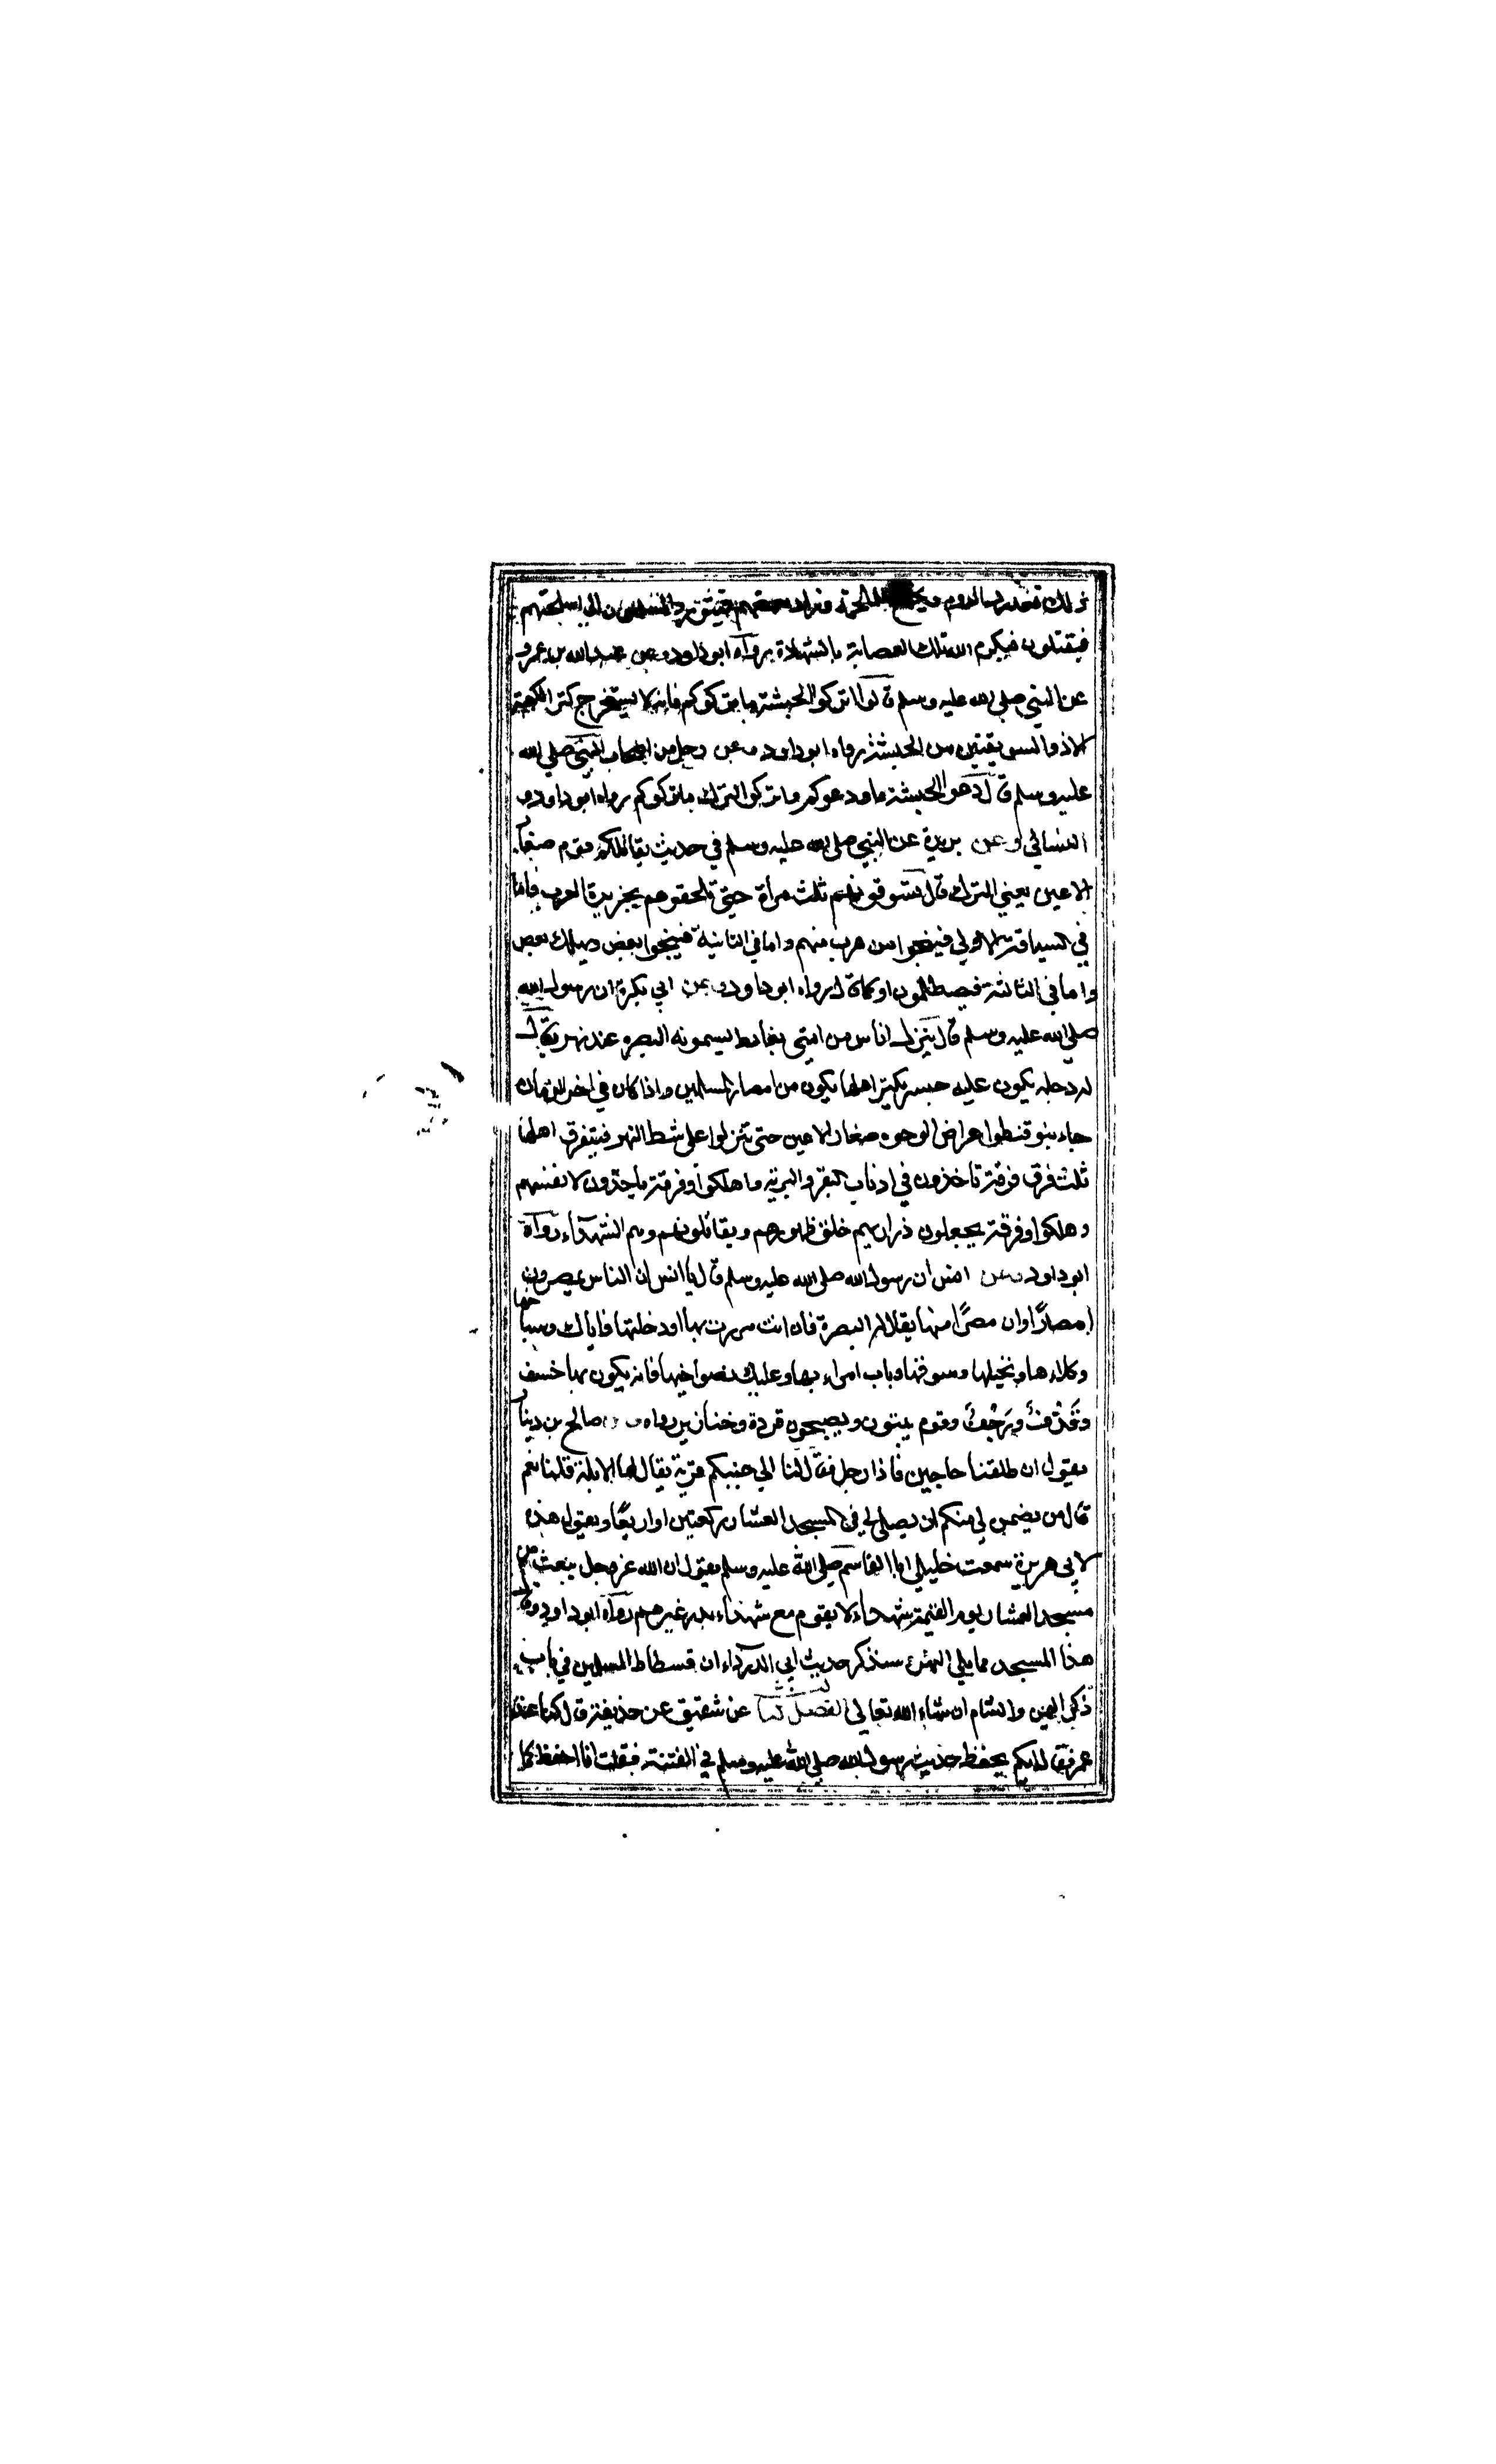 ذلك تغدر الروم ويجمع للملحمة وزاد بعضهم فيثور المسلمون الي اسلحتهم
فيقتتلون فيكرم الله تلك العصابة بالشهادة رواه ابو داود وعن عبد الله بن عمرو
عن النبي صلي الله عليه وسلم قال اتركوا الحبشة ما تركوكم فانه لا يستخرج كنز الكعبة
الا ذو السويقتين من الحبشة رواه ابو داود وعن رجل من اصحاب النبي صلي الله
عليه وسلم قال دعوا الحبشة ما ودعوكم واتركوا الترك ما تركوكم رواه ابو داود و
النسائي وعن بريدة عن النبي صلي الله عليه وسلم في حديث يقاتلكم قوم صغار
الاعين يعني الترك قال تسوقونهم ثلث مرأة حتي تلحقوهم بجزيرة العرب فاما
في السياقة الاولي فينجوا من هرب منهم واما في الثانية فينجوا بعض ويهلك بعض
واما في الثالثة فيصطلمون او كما قال رواه ابو داود وعن ابي بكرة ان رسول الله
صلي الله عليه وسلم قال ينزل اناس من امتي بغايط يسمونه البصره عند نهر يقال
له دجله يكون عليه جسر يكثر اهلها يكون من امصار المسلمين واذا كان في اخر الزمان
جاء بنو قنطورا عراض الوجوه صغار الاعين حتي تنزلوا علي شط النهر فيتفرق اهلها
ثلث فرق فرقة تاخذون في اذناب البقر و البرية وهلكوا وفرقة ياخذون لانفسهم
وهلكوا وفرقة يجعلون ذراريهم خلف ظهورهم ويقاتلونهم وهم الشهداء رواه
ابو داود وعن انس ان رسول الله صلي الله عليه وسلم قال يا انس ان الناس يمصرون
امصارًا وان مصرًا منها يقال له البصرة فان انت مررت بها او دخلتها فاياك وسباخها
وكلاءها ونخيلها وسوقها وباب امراء بها وعليك بضواحيها فانه يكون بها خسف
وقذف ورجف وقوم يبيتون ويصبحون قردة وخنازير رواه و صالح بن دينار
يقول انطلقنا حاجين فاذا رجل فقال لنا الي جنبكم قرية يقال لها الابلة قلنا نعم
قال من يضمن لي منكم ان يصلي لي في المسجد العشار ركعتين او اربعًا ويقول هذه
لابي هريرة سمعت خليلي ابا القاسم صلي الله عليه وسلم يقول ان الله عز وجل يبعث من
مسجد العشار يوم القيمة شهداء لا يقوم مع شهداء بدر غيرهم رواه ابو داود وقال
هذا المسجد مما يلي النهر سنذكر حديث ابي الدرداء ان فسطاط المسلمين في باب
ذكر اليمن والشام ان شاء الله تعالي الفصل الثالث عن شقيق عن حذيفة قال كنا عند
عمر فقال ايكم يحفظ حديث رسول الله صلي الله عليه وسلم في الفتنة فقلت انا احفظ كما